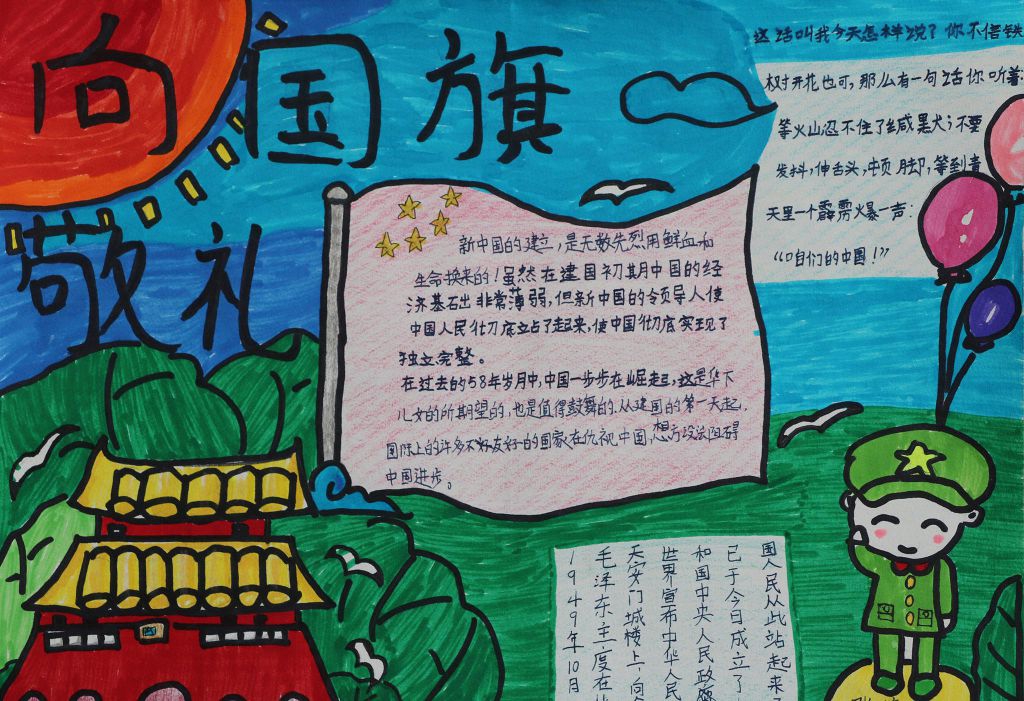 向国旗
敬礼
这话叫我今天怎样说?你不信铁
树开花也可,那么有一句话你听着:
等火山忍不住了缄默,不要
发抖,伸舌头,顿脚,等到青
天里一个霹雳火爆一声:
“咱们的中国!”
新中国的建立,是无数先烈用鲜血和
生命换来的!虽然在建国初期中国的经
济基石出非常薄弱,但新中国的令页导人使
中国人民彻底立占了起来,使中国彻底实现了
独立完整。
在过去的58年岁月中,中国一步步在崛起,这是华下
儿女的所期望的,也是值得鼓舞的.从建国的第一天起,
国际上的许多不好友好的国家在仇视中国,想方设法阻碍
中国进步。
1949年10月
毛泽东主度在
天安门城楼上,向
世界宣布中华人民
和国中央人民政府
已于今日成立了
国人民从此站起来